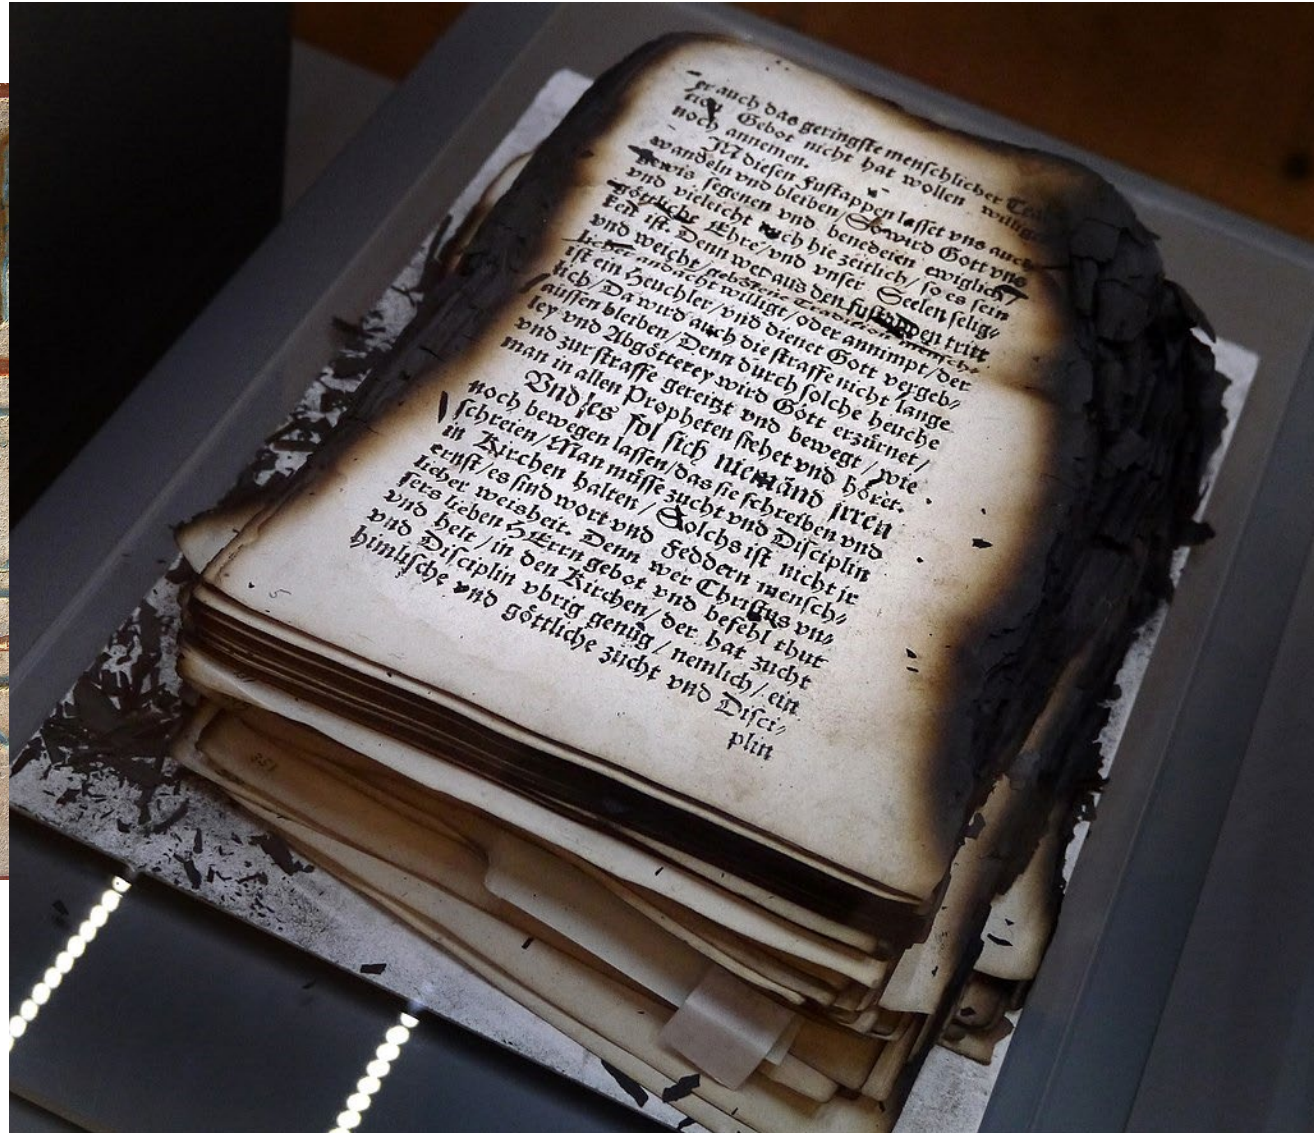 er auch das geringste menschlicher
tion Gebot nicht hat wollen willig
noch annemen.
IN diesen Fustappen lasset vns auch
wandeln vnd bleiben / So wird Gott vns
gewis segenen vnd benedeien ewiglich /
vnd vieleicht auch hie zeitlich / so es sein
göttliche Ehre / vnd vnser Seelen selig⸗
keit ist. Denn wer aus den fustappen tritt
vnd weicht /
andacht williget / oder annimpt / der
ist ein Heuchler / vnd dienet Gott vergeb⸗
lich / Da wird auch die straffe nicht lange
aussen bleiben / Denn durch solche heuche
ley vnd Abgötterey wird Gott erzürnet /
vnd zur straffe gereitzt vnd bewegt / wie
man in allen Propheten sihet vnd höret.
Vnd es sol sich niemand jrren
noch bewegen lassen / das sie schreiben vnd
schreien / Man müsse zucht vnd Disciplin
in Kirchen halten / Solchs ist nicht jr
ernst / es sind wort vnd Feddern mensch⸗
licher weisheit. Denn wer Christus vn⸗
sers lieben HErrn gebot vnd befehl thut
vnd helt / in den Kirchen / der hat zucht
vnd Disciplin vbrig genug / nemlich / ein
himlische vnd göttliche zucht vnd Disci⸗
plin
5
351